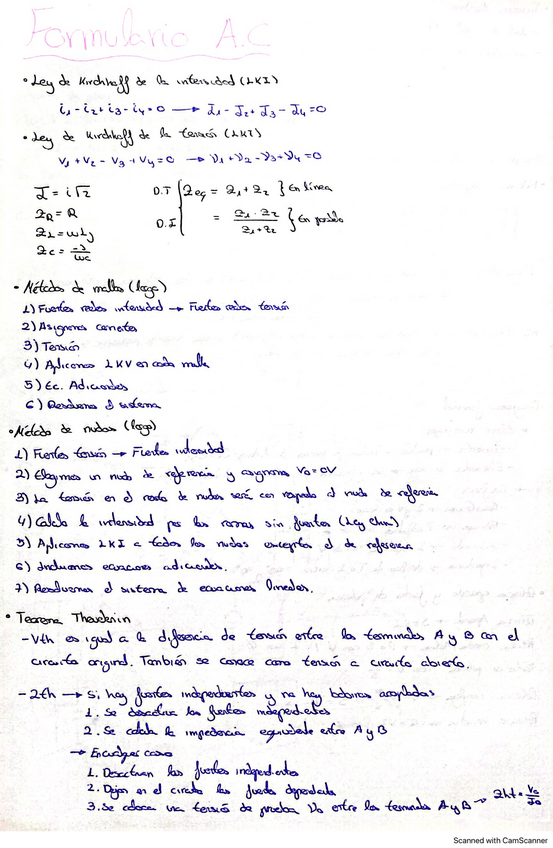 Formulario A.C
• Ley de Kirchhoff de la intensidad (LKI)
i₁ - i₂ + i₃ - i₄ = 0 → I₁ - I₂ + I₃ - I₄ = 0
• Ley de Kirchhoff de la tensión (LKT)
V₁ + V₂ - V₃ + V₄ = 0 → V₁ + V₂ - V₃ + V₄ = 0
I = i√2
Z_R = R
Z_L = ωLj
Z_C = -j/ωC
D.T { Zeq = Z₁ + Z₂ } En línea
D.I { = Z₁ · Z₂ / Z₁ + Z₂ } En paralelo
• Método de mallas (lazo)
1) Fuentes reales intensidad → Fuentes reales tensión
2) Asignamos corrientes
3) Tensión
4) Aplicamos LKV en cada malla
5) Ec. Adicionales
6) Resolvemos el sistema
• Método de nudos (lazo)
1) Fuentes tensión → Fuentes intensidad
2) Elegimos un nudo de referencia y asignamos V₀ = 0V
3) La tensión en el resto de nudos será con respecto al nudo de referencia
4) Calcula la intensidad por las ramas sin fuentes (Ley Ohm)
5) Aplicamos LKI a todos los nudos excepto el de referencia
6) Incluimos ecuaciones adicionales.
7) Resolvemos el sistema de ecuaciones lineales.
• Teorema Thevenin
- Vth es igual a la diferencia de tensión entre los terminales A y B con el
circuito original. También se conoce como tensión a circuito abierto.
- Zth → Si hay fuentes independientes y no hay bobinas acopladas
1. Se desactivan las fuentes independientes
2. Se calcula la impedancia equivalente entre A y B
→ En cualquier caso
1. Desactivan las fuentes independientes
2. Dejan en el circuito las fuentes dependientes
3. Se coloca una tensión de prueba V₀ entre los terminales A y B → Zht = V₀/I₀
Scanned with CamScanner